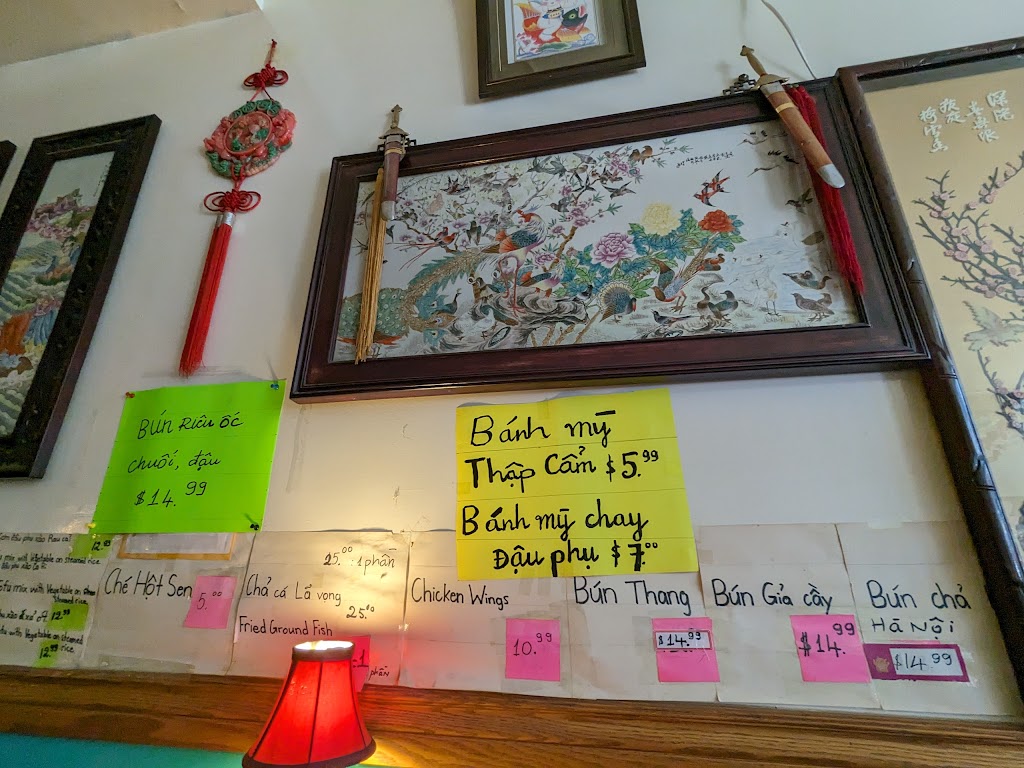 Bún Riêu ốc
chuối, đậu
$14.99
Bánh mỹ
Thập Cẩm $5.99
Bánh mỹ chay
Đậu phụ $7.00
12.99
mix with Vegetable on steamed rice.
Tofu mix with Vegetable on
steamed rice.
12.99
with Vegetable on steamed
rice.
12.99
Ché Hột Sen
5.00
25.00 1 phần
Chả cá Lả vong
25.00
Fried Ground Fish
1
phần
Chicken Wings
10.99
Bún Thang
$14.99
Bún Giả cầy
$14.99
Bún chả
Hà Nội
$14.99